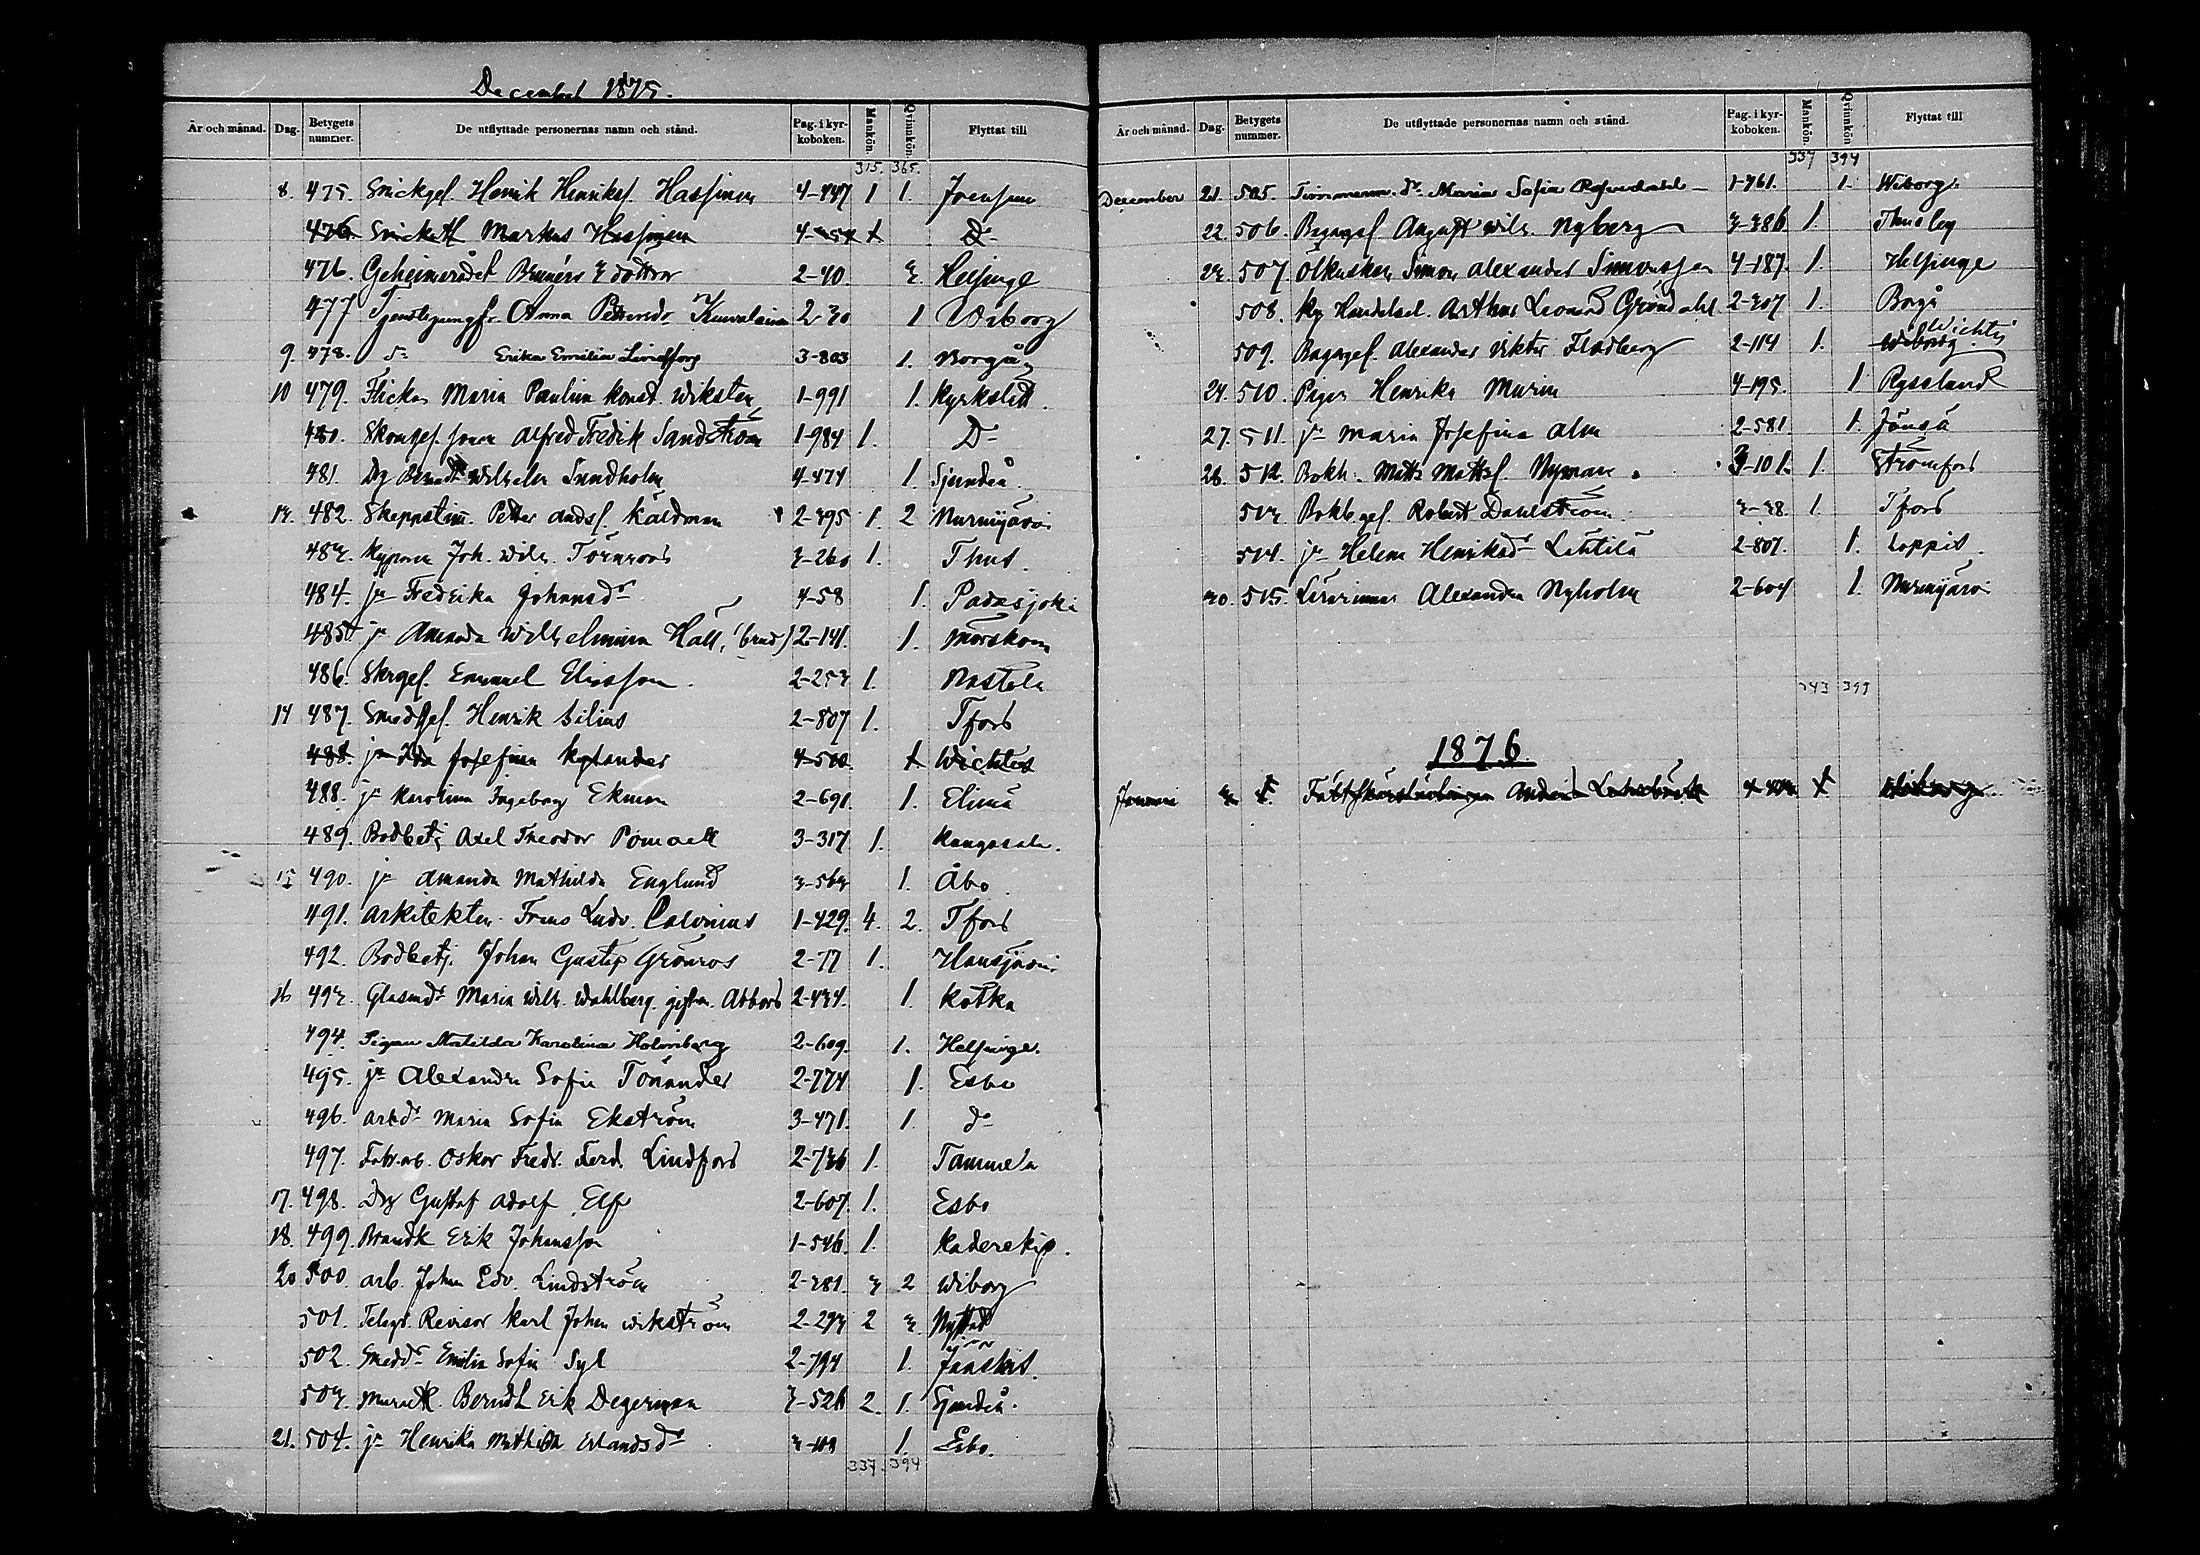 December 1875.
År och månad. Dag. Betygets nummer. De utflyttade personernas namn och stånd. Pag. i kyrkoboken. Mankön. Qvinnkön. Flyttat till
315. 365.
8. 475. Snickges. Henrik Henriks. Hassinen 4-447 1 1. Joensuu
476. Markus Hassinen D-
476. Geheimerådet Brunérs 3 döttrar 2-40. 3. Helsinge
477 Tjenstejungfr. Anna Pettersdr 2-30 1 Wiborg
9. 478. do Erika Emilia Lindfors 3-803 1. Borgå
10 479. Flickan Maria Paulina Konst. Wiksten 1-991 1. Kyrkslätt.
480. Alfred Fredik Sandström 1-984 1. D-
481. Dg Berndt Wilhelm Sundholm 4-474 1. Sjundeå.
13. 482. Skeppstim. Petter Ands. Käldman 2-395 1. 2 Nurmijärvi
483. Kypparen Joh. Wilh. Törnroos 3-260 1. Thus.
484. jn Fredrika Johansdr 4-58 1. Padasjoki
485 jn Amanda Wilhelmina Häll, (brud) 2-141. 1. Mörskom
486. Skrges. Emanuel 2-253 1. Nastola
14 487. Smedsges. Henrik Silius 2-807 1. Tfors
488. jn Ida Josefina Kylander 4-500. 1 Wichtis
488. jn Karolina Ingeborg Ekman 2-691. 1. Elimä
489. Bodbetj Axel Theodor Pomoell 3-317 1. Kangasala.
15 490. jn Amanda Mathilda Englund 3-563 1. Åbo
491. Arkitekten Frans Ludv. Calonius 1-429. 4. 2. Tfors
492. Bodbetj. Johan Gustaf Grönroos 2-77 1. Hausjärvi
16 493. Glasmdr Maria Wilh. Wahlberg, giftan. Abbors 2-434. 1. Kotka
494. Pigan Matilda Karolina Holmberg 2-609. 1. Helsinge.
495. jn Alexandra Sofia Törnander 2-774 1. Esbo
496. arbdr Maria Sofia Ekström 3-471. 1. do
497. Fabr.arb. Oskar Fredr. Ferd. Lindfors 2-736 1. Tammela
17. 498. Dg Gustaf Adolf Elf 2-607. 1. Esbo
18. 499. Brandk Erik Johansson 1-546. 1.
20 500 arb. Johan Edv. Lindström 2-381. 3 2 Wiborg
501. Telegr. Revisor Karl Johan Wikström 2-293 2 3. Nystad
502. Smeddr Emilia Sofia Syl 2-794 1. Jääskis.
503. Berndt Erik Degerman 3-526 2. 1. Sjundeå.
21. 504. jn Henrika Mathilda Erlandsdr 1. Esbo.
337. 394
År och månad. Dag. Betygets nummer. De utflyttade personernas namn och stånd. Pag. i kyrkoboken. Mankön. Qvinnkön. Flyttat till
337 394
December 21. 505. Timmerm. dr Maria Sofia Rosendahl 1-761. 1. Wiborg.
22. 506. Bagarges. August Wilh. Nyberg 3-386 1. Thusby
23. 507. Ölkusken Simon Alexander Simonsson 4-187. 1. Helsinge
508. Arthur Leonard Gröndahl 2-307 1. Borgå
509. Bagarges. Alexander Viktor Flodberg 2-114 1. Wiborg Wichtis
24. 510. Pigan Henrika Murin 4-195. 1 Ryssland
27. 511. jn Maria Josefina Alm 2-581. 1.
28. 512. Bokh. Matts Matts. Nyman 3-101. 1. Strömfors
513. Bokb.ges. Robert Dahlström. 3-38. 1. Tfors
514. jn Helena Henriksdr Lehtilä 2-807. 1. Loppis.
30. 515. Lärarinnan Alexandra Nyholm 2-604 1. Nurmijärvi
343 399
1876.
Januari 3 1. 1 Wiborg